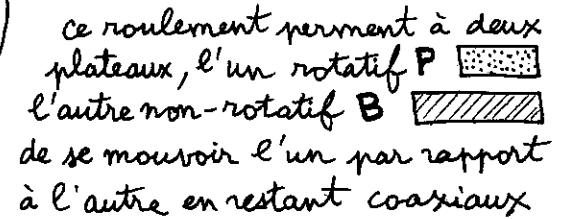 ce roulement perment à deux
plateaux, l'un rotatif P
l'autre non-rotatif B
de se mouvoir l'un par rapport
à l'autre en restant coaxiaux